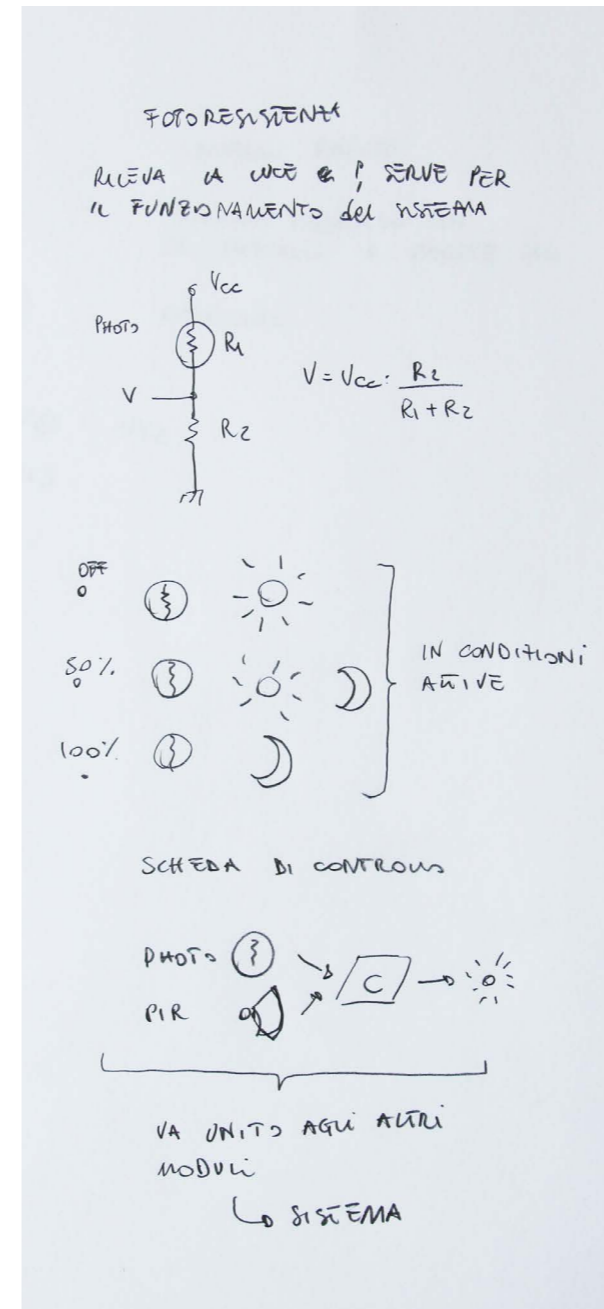 FOTORESISTENZA
RILEVA LA LUCE E SERVE PER
IL FUNZIONAMENTO del SISTEMA
Vcc
PHOTO
R1
V = Vcc · R2
R1 + R2
V
R2
OFF
50%
IN CONDIZIONI
ATTIVE
100%
SCHEDA DI CONTROLLO
PHOTO
C
PIR
VA UNITO AGLI ALTRI
MODULI
SISTEMA